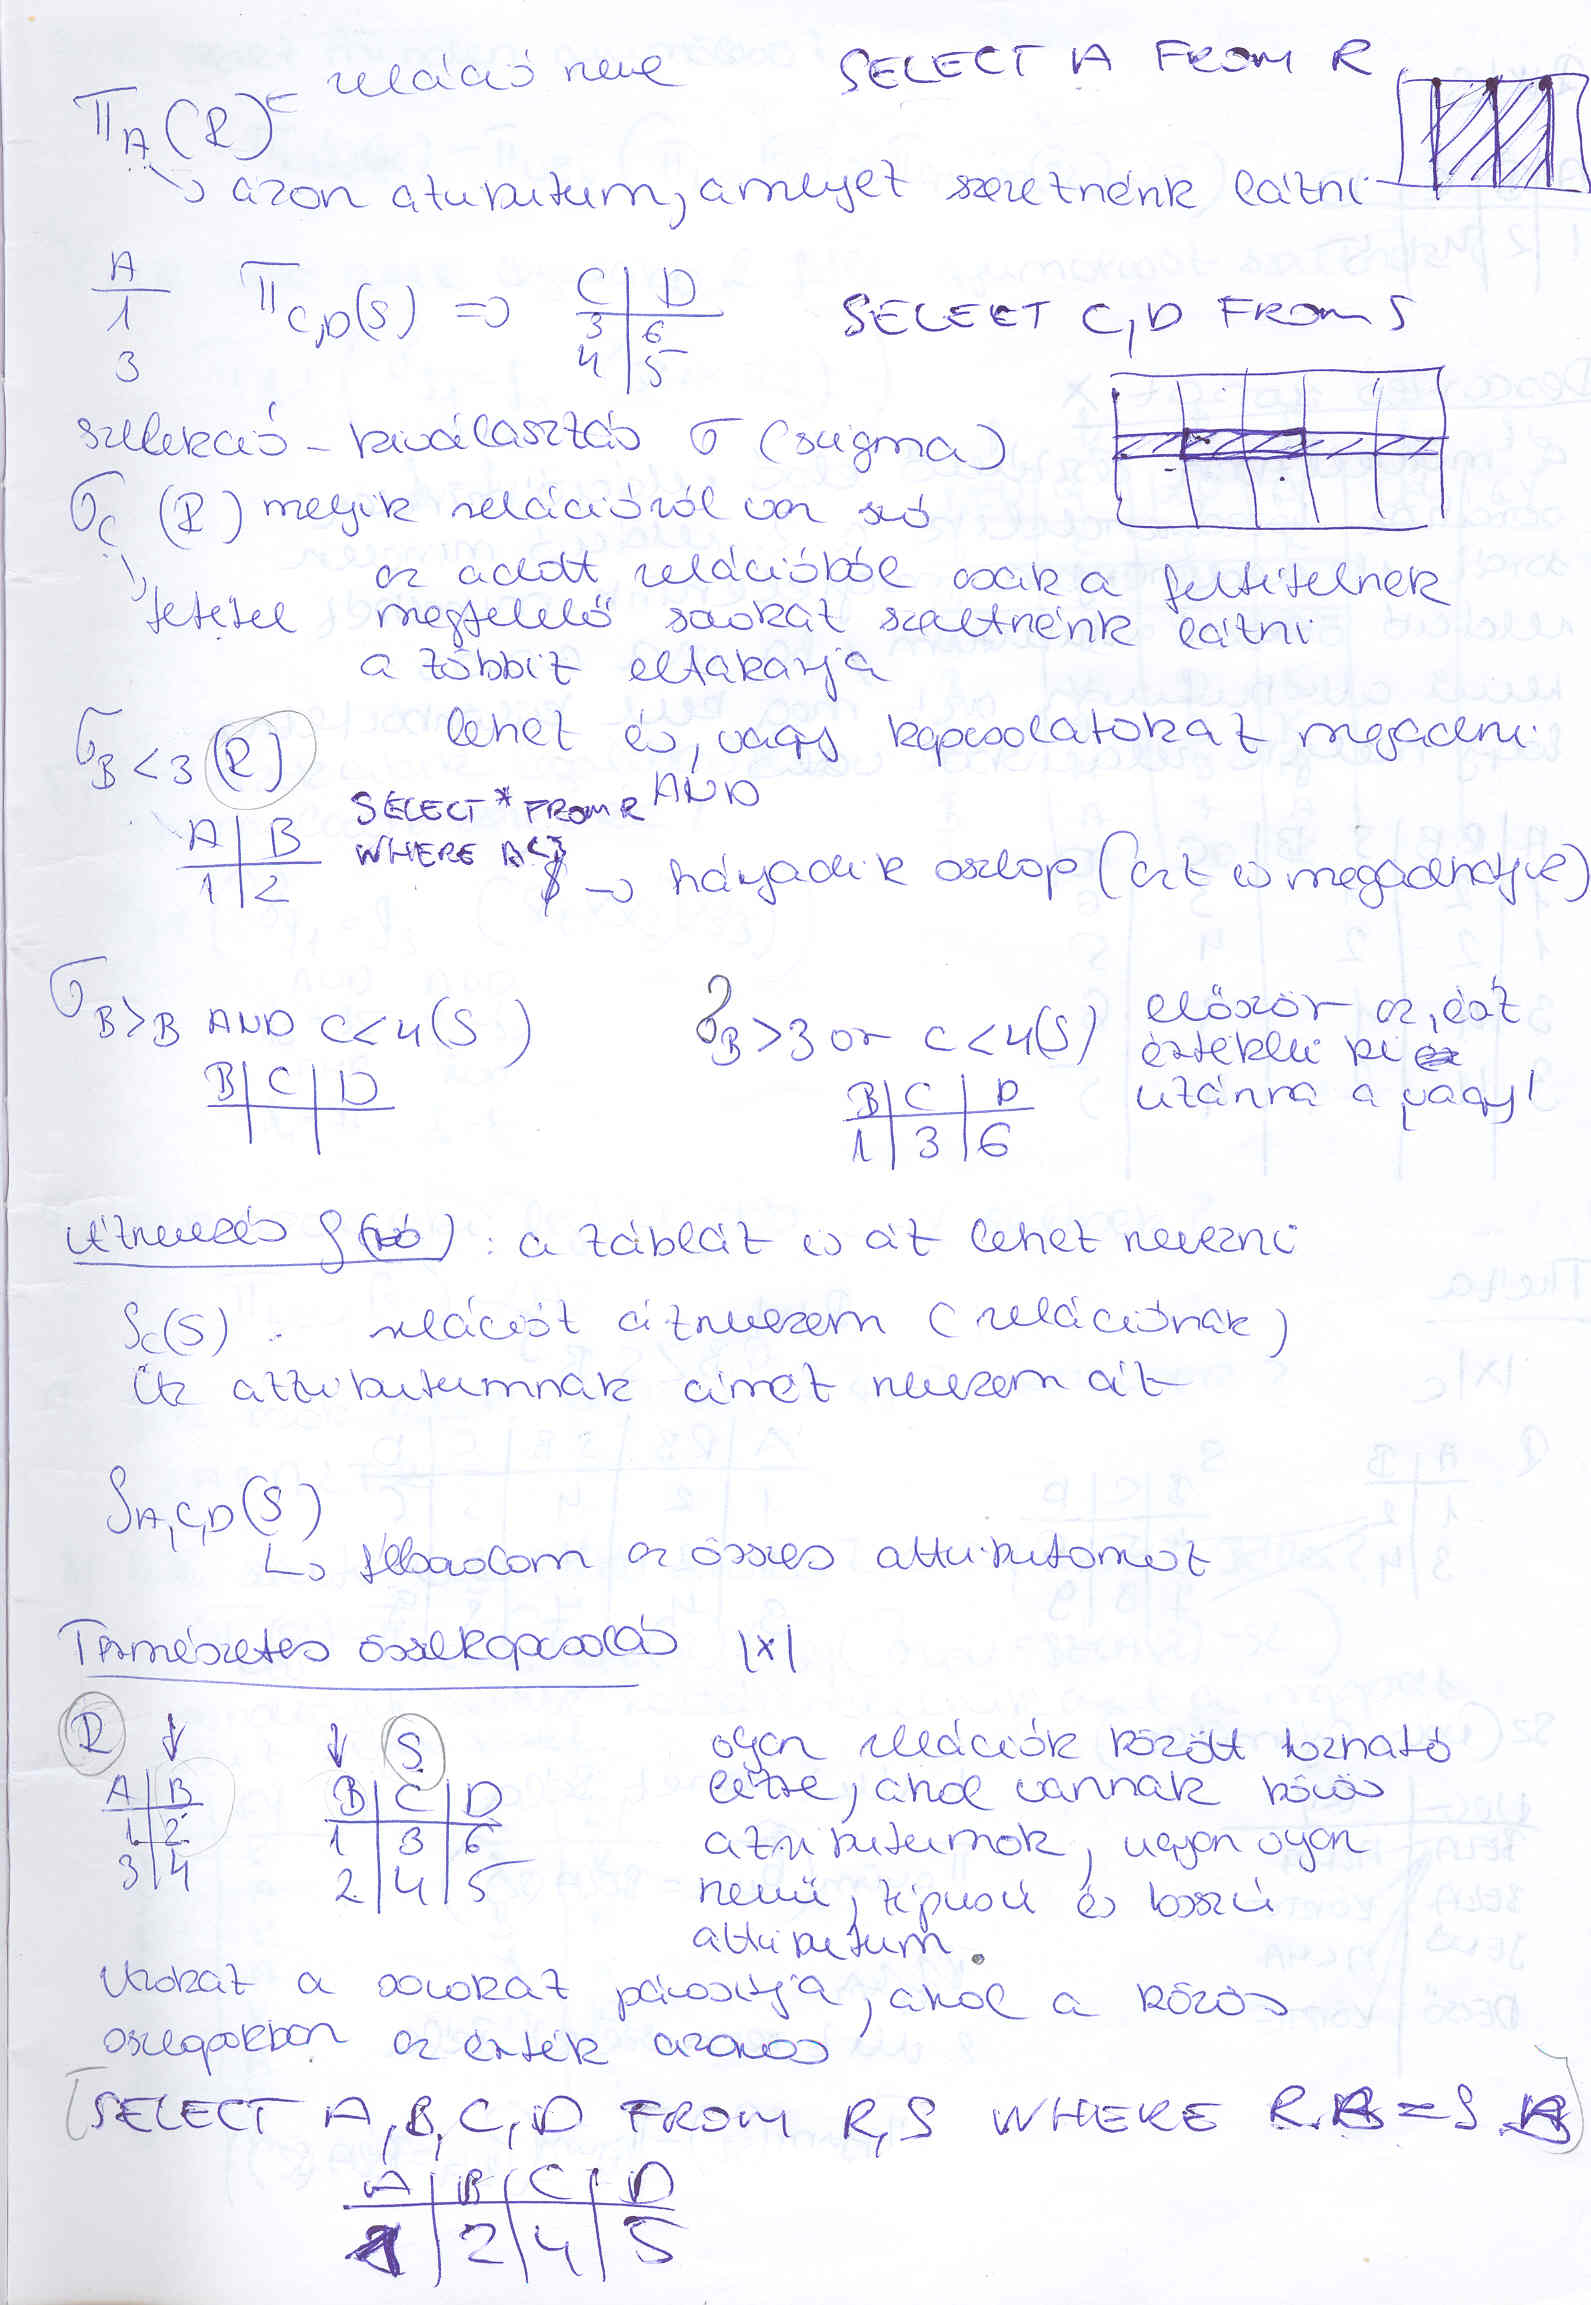 reláció neve SELECT A FROM R
π A (R)
azon atributum, amelyet szeretnénk látni
A
1
3
π C,D(S) => C D
3 6
4 5
SELECT C,D FROM S
szelekció - kiválasztás σ (szigma)
σ C (R) melyik relációról van szó
az adott relációból csak a feltételnek
megfelelő sorokat szeretnénk látni
a többit eltakarja
σ B<3 (R) lehet és, vagy kapcsolatokat megadni
AND
SELECT * FROM R
WHERE
A B
1 2
→ hányadik oszlop (azt is megadhatjuk)
σ B>B AND C<4(S)
B C D
σ B>3 or C<4(S)
B C D
1 3 6
először az, ést
értékeli ki
utánna a vagy!
Átnevezés ρ(ró) : a táblát is át lehet nevezni
ρC(S) relációt átnevezem (relációnak)
Az attributumnak címét nevezem át
ρA,C,D(S)
↳ felsorolom az összes attributomot
Természetes összekapcsolás |x|
R
A B
1 2
3 4
S
B C D
1 3 6
2 4 5
olyan relációk között hozható
létre, ahol vannak közös
atributumok, ugyan olyan
nevű, típusú és hosszú
attributum.
Azokat a sorokat párosítja, ahol a közös
oszlopokban az érték azonos
SELECT A,B,C,D FROM R,S WHERE R.B=S.B
A B C D
1 2 4 5